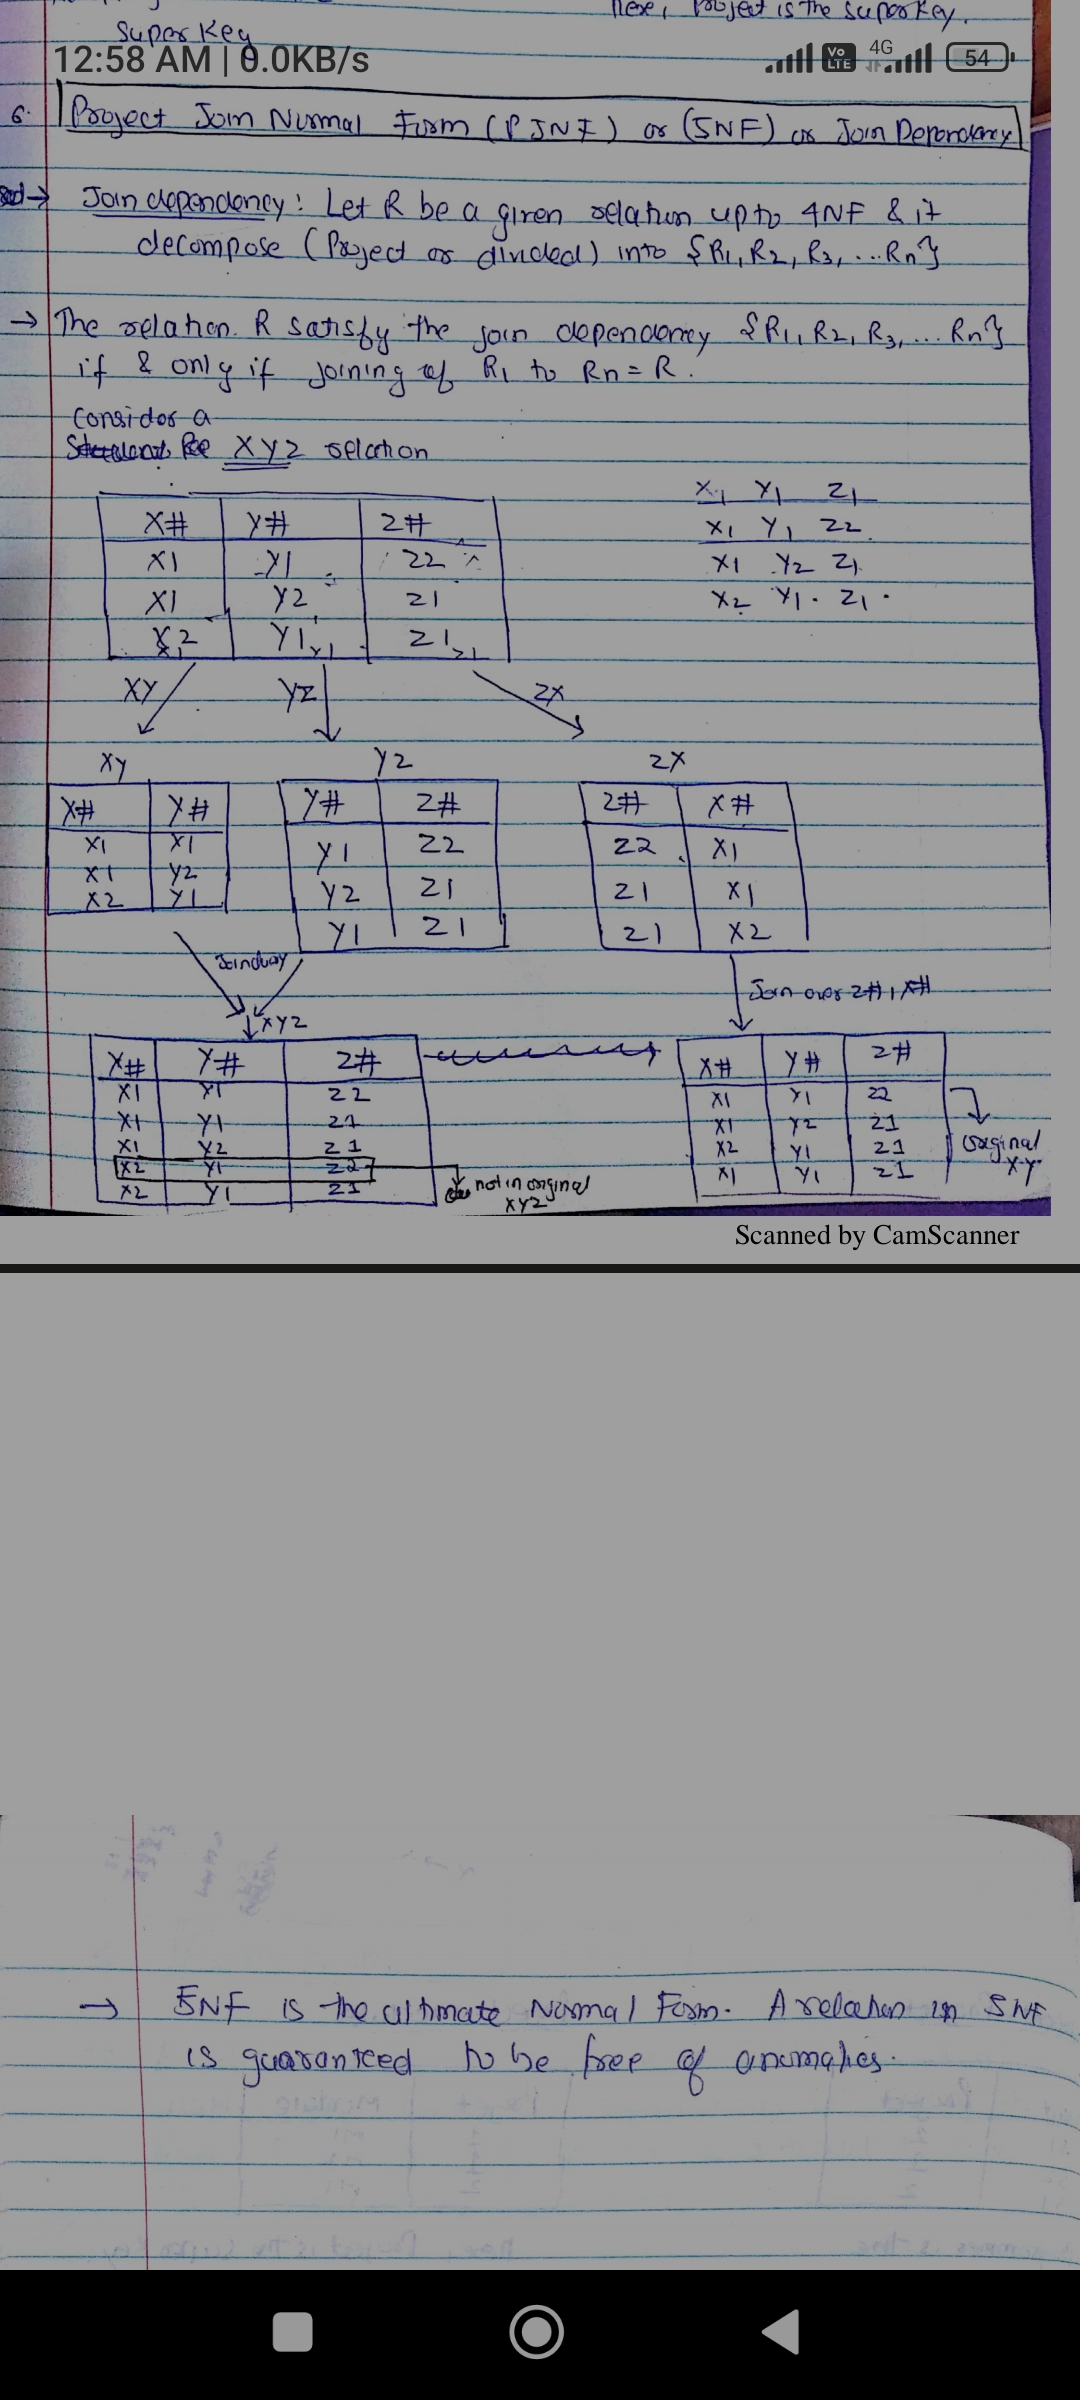 Here, Project is the super key.
Super Key
12:58 AM | 0.0KB/s
Vo LTE 4G 54
6. Project Join Normal Form (PJNF) or (5NF) or Join Dependency
→ Join dependency: Let R be a given relation upto 4NF & it
decompose (Project or divided) into {R1, R2, R3, ... Rn}
→ The relation R satisfy the join dependency {R1, R2, R3, ... Rn}
if & only if joining of R1 to Rn = R.
Consider a
XYZ relation
X1 Y1 Z1
X1 Y1 Z2
X1 Y2 Z1
X2 Y1 Z1
X# Y# Z#
X1 Y1 Z2
X1 Y2 Z1
X2 Y1 Z1
XY YZ ZX
XY YZ ZX
X# Y#
X1 X1
X1 Y2
X2 Y1
Y# Z#
Y1 Z2
Y2 Z1
Y1 Z1
Z# X#
Z2 X1
Z1 X1
Z1 X2
Join over Z#, X#
XYZ
X# Y# Z#
X1 Y1 Z2
X1 Y1 Z1
X1 Y2 Z1
X2 Y1 Z2
X2 Y1 Z1
not in original
XYZ
X# Y# Z#
X1 Y1 Z2
X1 Y2 Z1
X2 Y1 Z1
X1 Y1 Z1
original
Scanned by CamScanner
→ 5NF is the ultimate Normal Form. A relation in 5NF
is guaranteed to be free of anomalies.